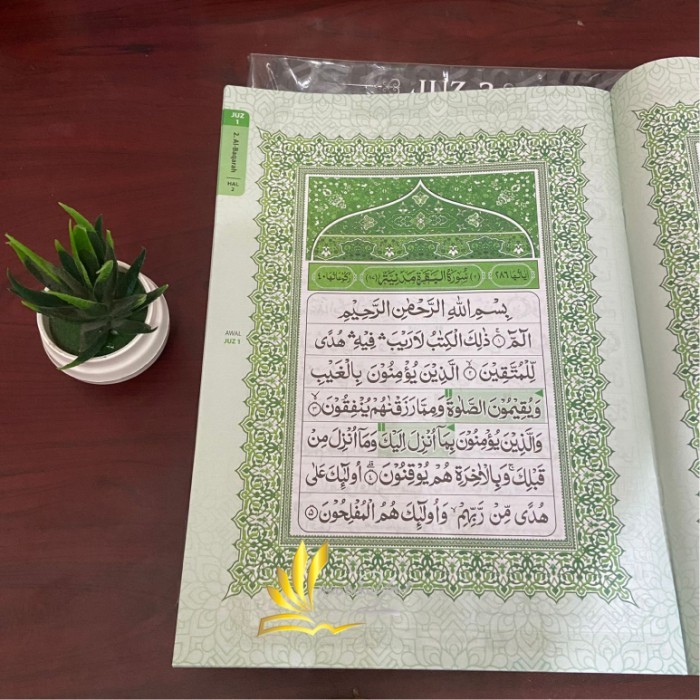 JUZ
1
2. Al-Baqarah
HAL
2
اٰيَاتُهَا ٢٨٦ سُوْرَةُ الْبَقَرَةِ مَدَنِيَّةٌ
بِسْمِ اللّٰهِ الرَّحْمٰنِ الرَّحِيْمِ
الۤمّۤ ۝١ ذٰلِكَ الْكِتٰبُ لَا رَيْبَ ۛ فِيْهِ ۛ هُدًى
لِّلْمُتَّقِيْنَ ۝٢ الَّذِيْنَ يُؤْمِنُوْنَ بِالْغَيْبِ
وَيُقِيْمُوْنَ الصَّلٰوةَ وَمِمَّا رَزَقْنٰهُمْ يُنْفِقُوْنَ ۝٣
وَالَّذِيْنَ يُؤْمِنُوْنَ بِمَآ اُنْزِلَ اِلَيْكَ وَمَآ اُنْزِلَ مِنْ
قَبْلِكَ ۚ وَبِالْاٰخِرَةِ هُمْ يُوْقِنُوْنَ ۝٤ اُولٰۤئِكَ عَلٰى
هُدًى مِّنْ رَّبِّهِمْ وَاُولٰۤئِكَ هُمُ الْمُفْلِحُوْنَ ۝٥
AWAL
JUZ 1